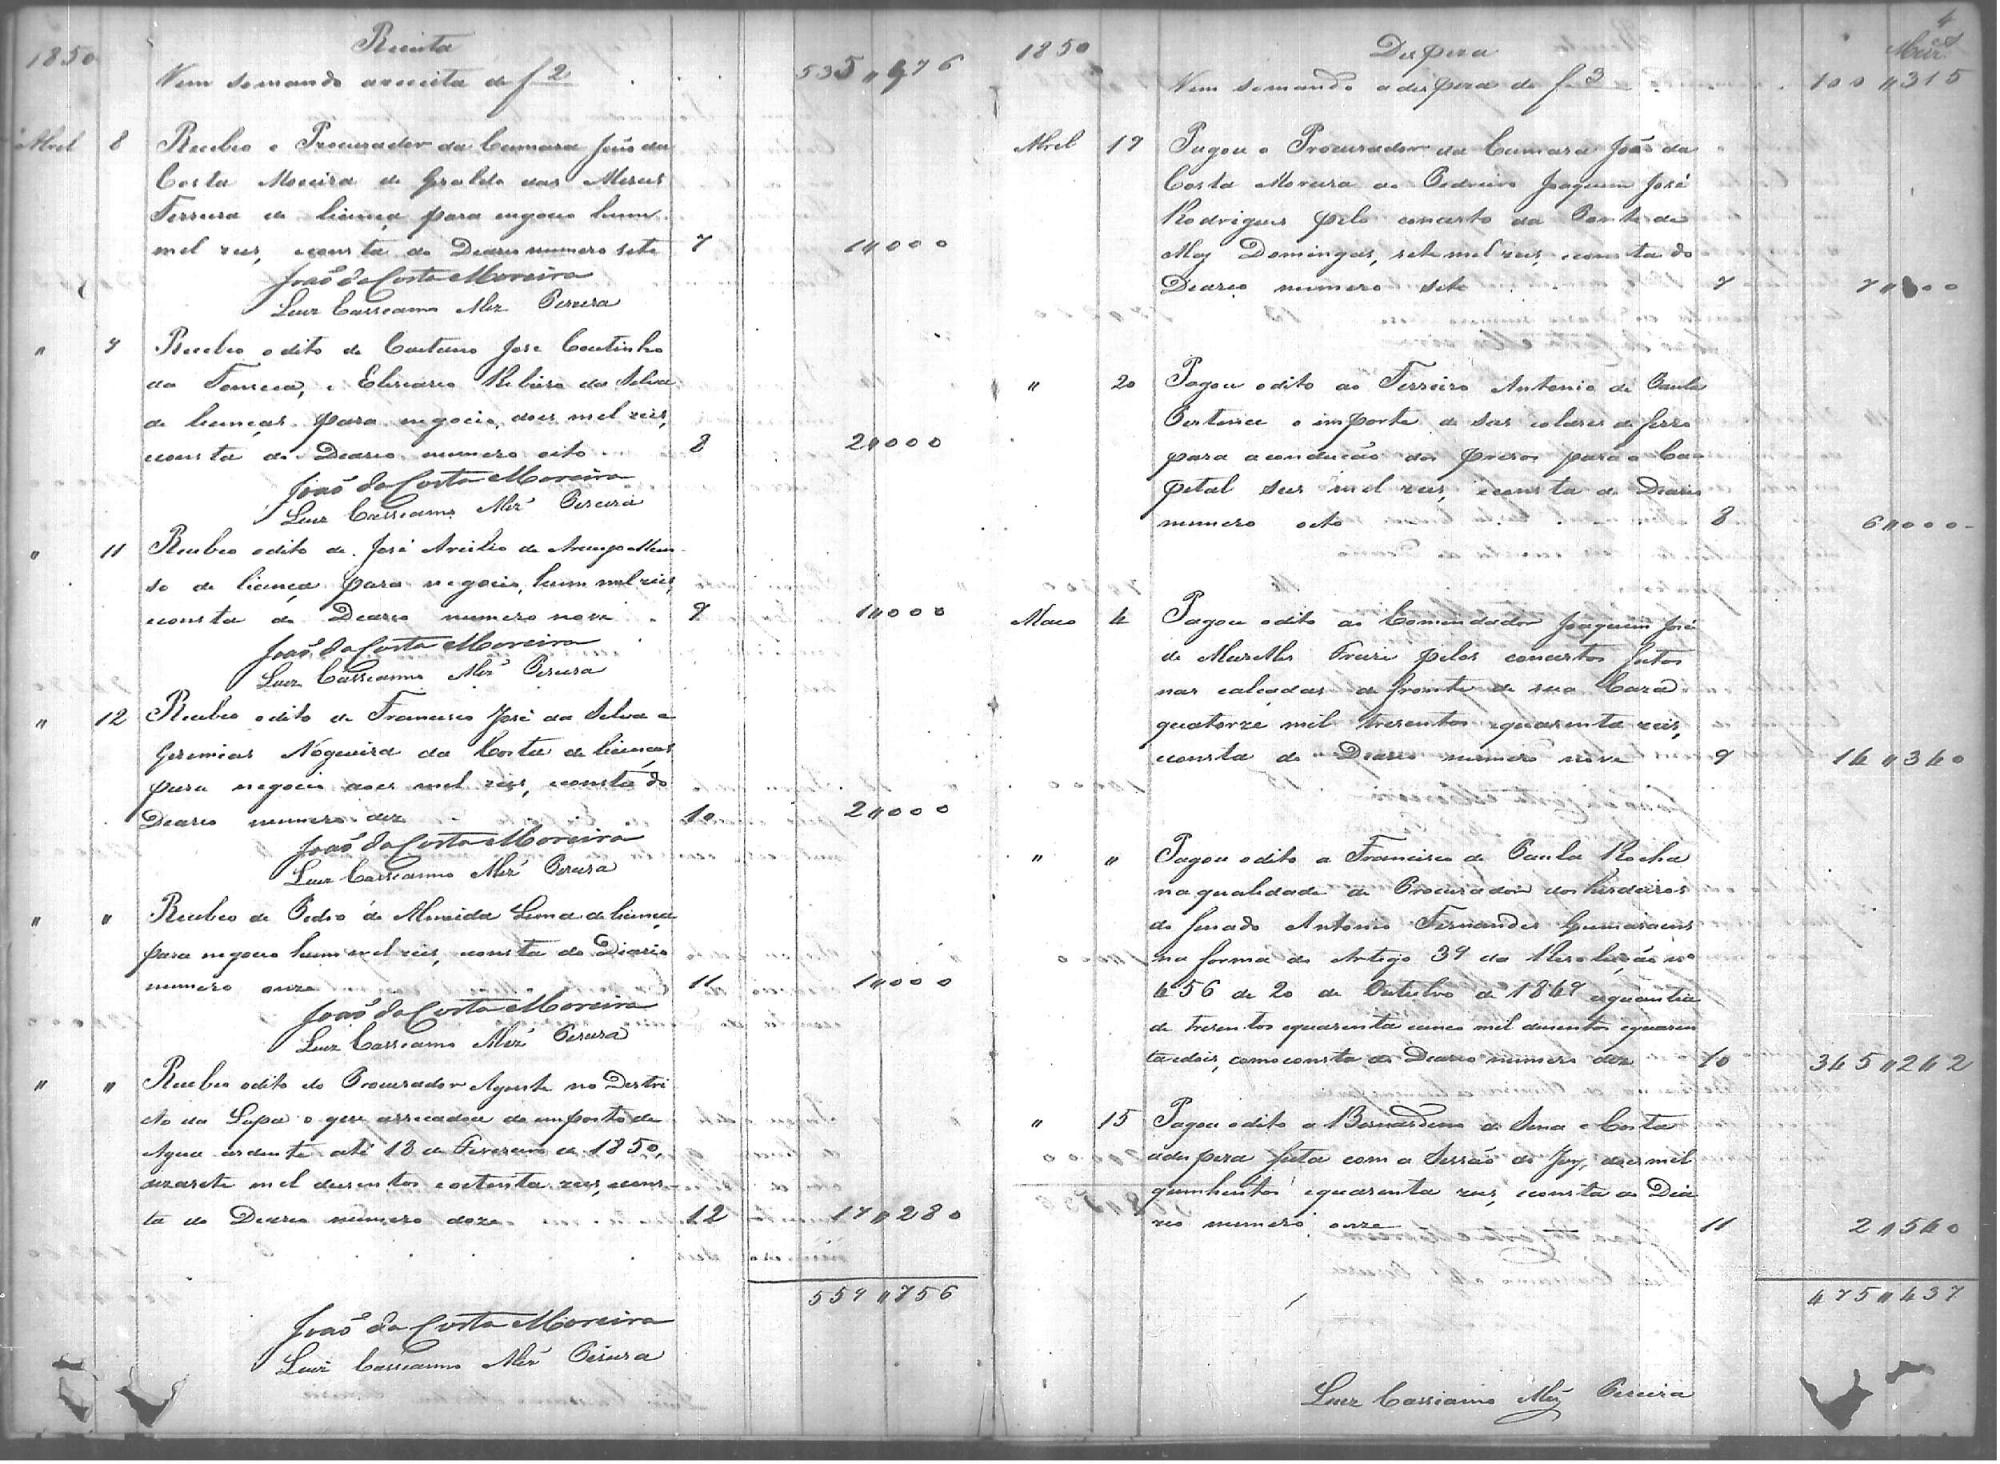 1850
Receita
Vem somando areceita de f 2 535"476
Abril 8 Recebeo o Procurador da Camara João da
Costa Moreira de Geraldo das Merces
Ferreira de licença para negocio hum
mil reis, econsta do Deario numero sete 7 1"000
João da Costa Moreira
Luiz Cassiano Miz Pereira
" 9 Recebeo odito de Caetano José Coutinho
da Fonseca, e Elisiario Ribeiro da Silva
de licenças para negocio, dois mil reis,
econsta do Deario numero oito 8 2"000
João da Costa Moreira
Luiz Cassiano Miz Pereira
" 11 Recebeo odito de José Arcilio de Araujo
de licença para negocio, hum mil reis,
econsta do Deario numero nove 9 1"000
João da Costa Moreira
Luiz Cassiano Miz Pereira
" 12 Recebeo odito de Francisco José da Silva e
Geremias Nogueira da Costa de licenças
para negocio dois mil reis, econsta do
Deario numero dez 10 2"000
João da Costa Moreira
Luiz Cassiano Miz Pereira
" " Recebeo de Pedro de Almeida Lima de licença
para negocio hum mil reis, econsta do Diario
numero onze 11 1"000
João da Costa Moreira
Luiz Cassiano Miz Pereira
" " Recebeo odito do Procurador Agente no Destri
cto da Lapa o que arrecadou do imposto de
Agua ardente até 18 de Fevereiro de 1850,
dezasete mil dusentos eoitenta reis, econs-
ta do Deario numero doze 12 17"280
559"756
João da Costa Moreira
Luiz Cassiano Miz Pereira
4
1850
Despeza
Vem somando adespeza de f 3 100"315
Abril 19 Pagou o Procurador da Camara João da
Costa Moreira ao Pedreiro Joaquim José
Rodrigues pelo concerto da Ponte de
May Domingas, sete mil reis, econsta do
Deario numero sete 7 7"000
" 20 Pagou odito ao Ferreiro Antonio de Paula
o importe de seis colares de ferro
para aconducão dos prezos para a Ca
petal seis mil reis, econsta do Deario
numero oito 8 6"000
Maio 4 Pagou odito ao Comendador Joaquim José
de Meirelles Freire pelos concertos feitos
nas calcadas de fronte de sua Caza
quatorze mil tresentos equarenta reis,
econsta do Deario numero nove 9 14"340
" " Pagou odito a Francisco de Paula Rocha
na qualidade de Procurador dos herdeiros
do finado Antonio Fernandes Guimaraens
na forma do Artigo 39 da Resolução nº
456 de 20 de Outubro de 1849 aquantia
de tresentos equarenta cinco mil dusentos equaren
ta edois, como consta do Deario numero dez 10 345"242
" 15 Pagou odito a Bernardino de Sena e Costa
adespeza feita com a Sessão do Jury, dois mil
quinhentos equarenta reis, econsta do Dia
rio numero onze 11 2"540
475"437
Luiz Cassiano Miz Pereira